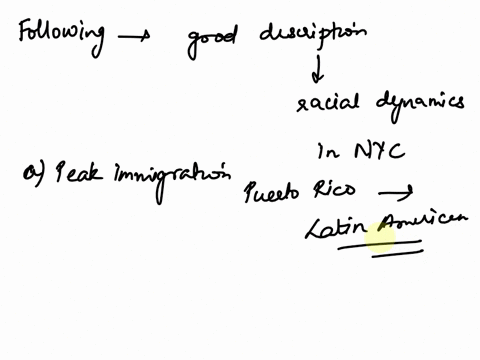 Following → good description
↓
racial dynamics
in NYC
a) Peak immigration Puerto Rico →
Latin American